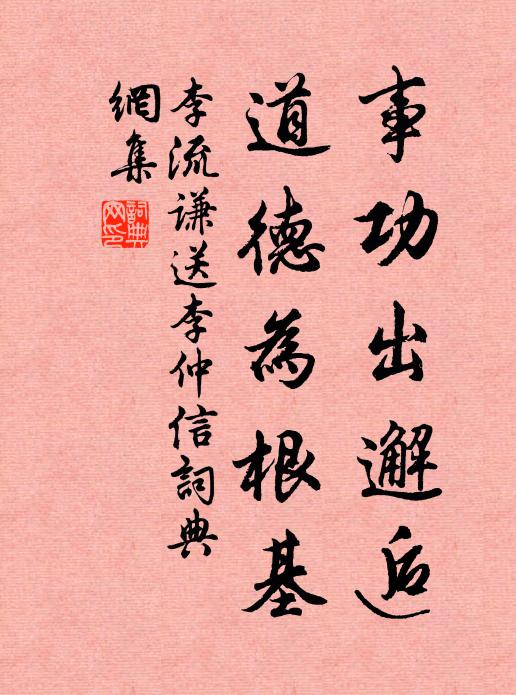 事功出邂逅
道德為根基
李流謙送李仲信詞典
網集
詞典
网印